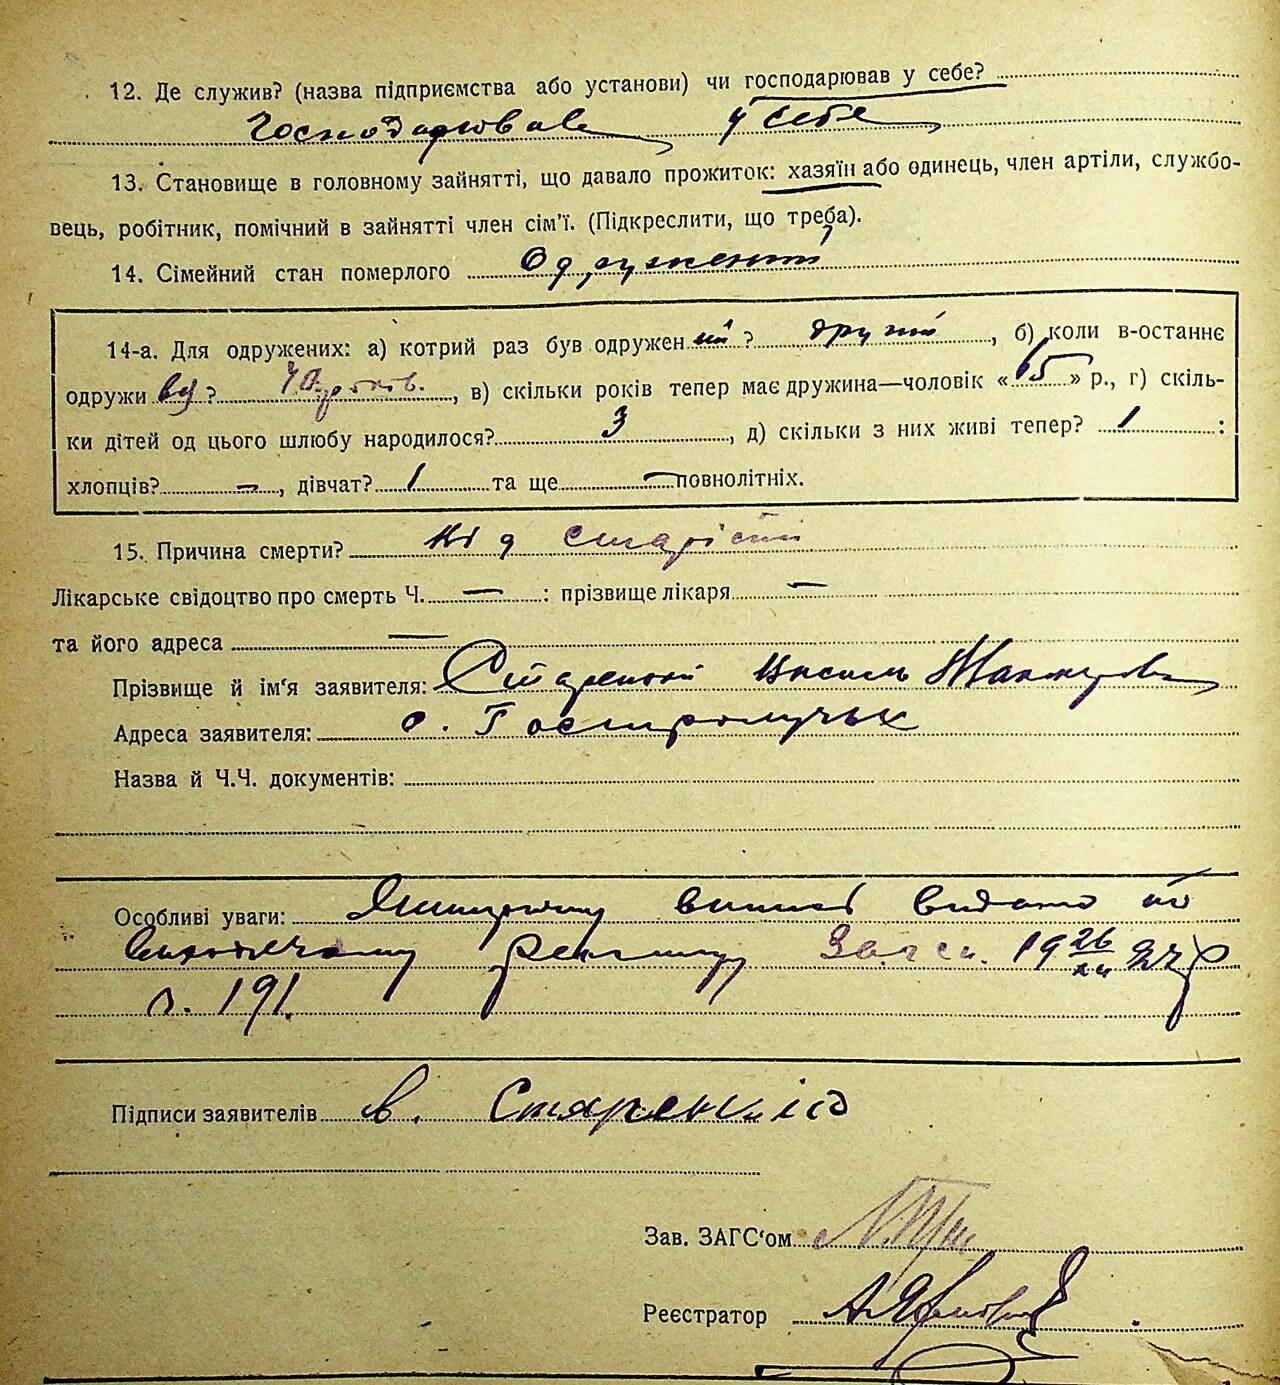 12. Де служив? (назва підприємства або установи) чи господарював у себе?
Господарював у себе
13. Становище в головному зайнятті, що давало прожиток: хазяїн або одинець, член артіли, службо-
вець, робітник, помічний в зайнятті член сім'ї. (Підкреслити, що треба).
14. Сімейний стан померлого Одружений
14-а. Для одружених: а) котрий раз був одружен ий? другий, б) коли в-останнє
одружи вся?, в) скільки років тепер має дружина—чоловік «65» р., г) скіль-
ки дітей од цього шлюбу народилося? 3, д) скільки з них живі тепер? 1:
хлопців? –, дівчат? 1 та ще – повнолітніх.
15. Причина смерти? Від старісти
Лікарське свідоцтво про смерть Ч. –: прізвище лікаря –
та його адреса –
Прізвище й ім'я заявителя: Старенький Василь
Адреса заявителя: с. Гостролуччя
Назва й Ч.Ч. документів:
Особливі уваги: видано по
Загса 19 26/XII 27 р
п. 191.
Підписи заявителів В. Старенкій
Зав. ЗАГС'ом
Реєстратор